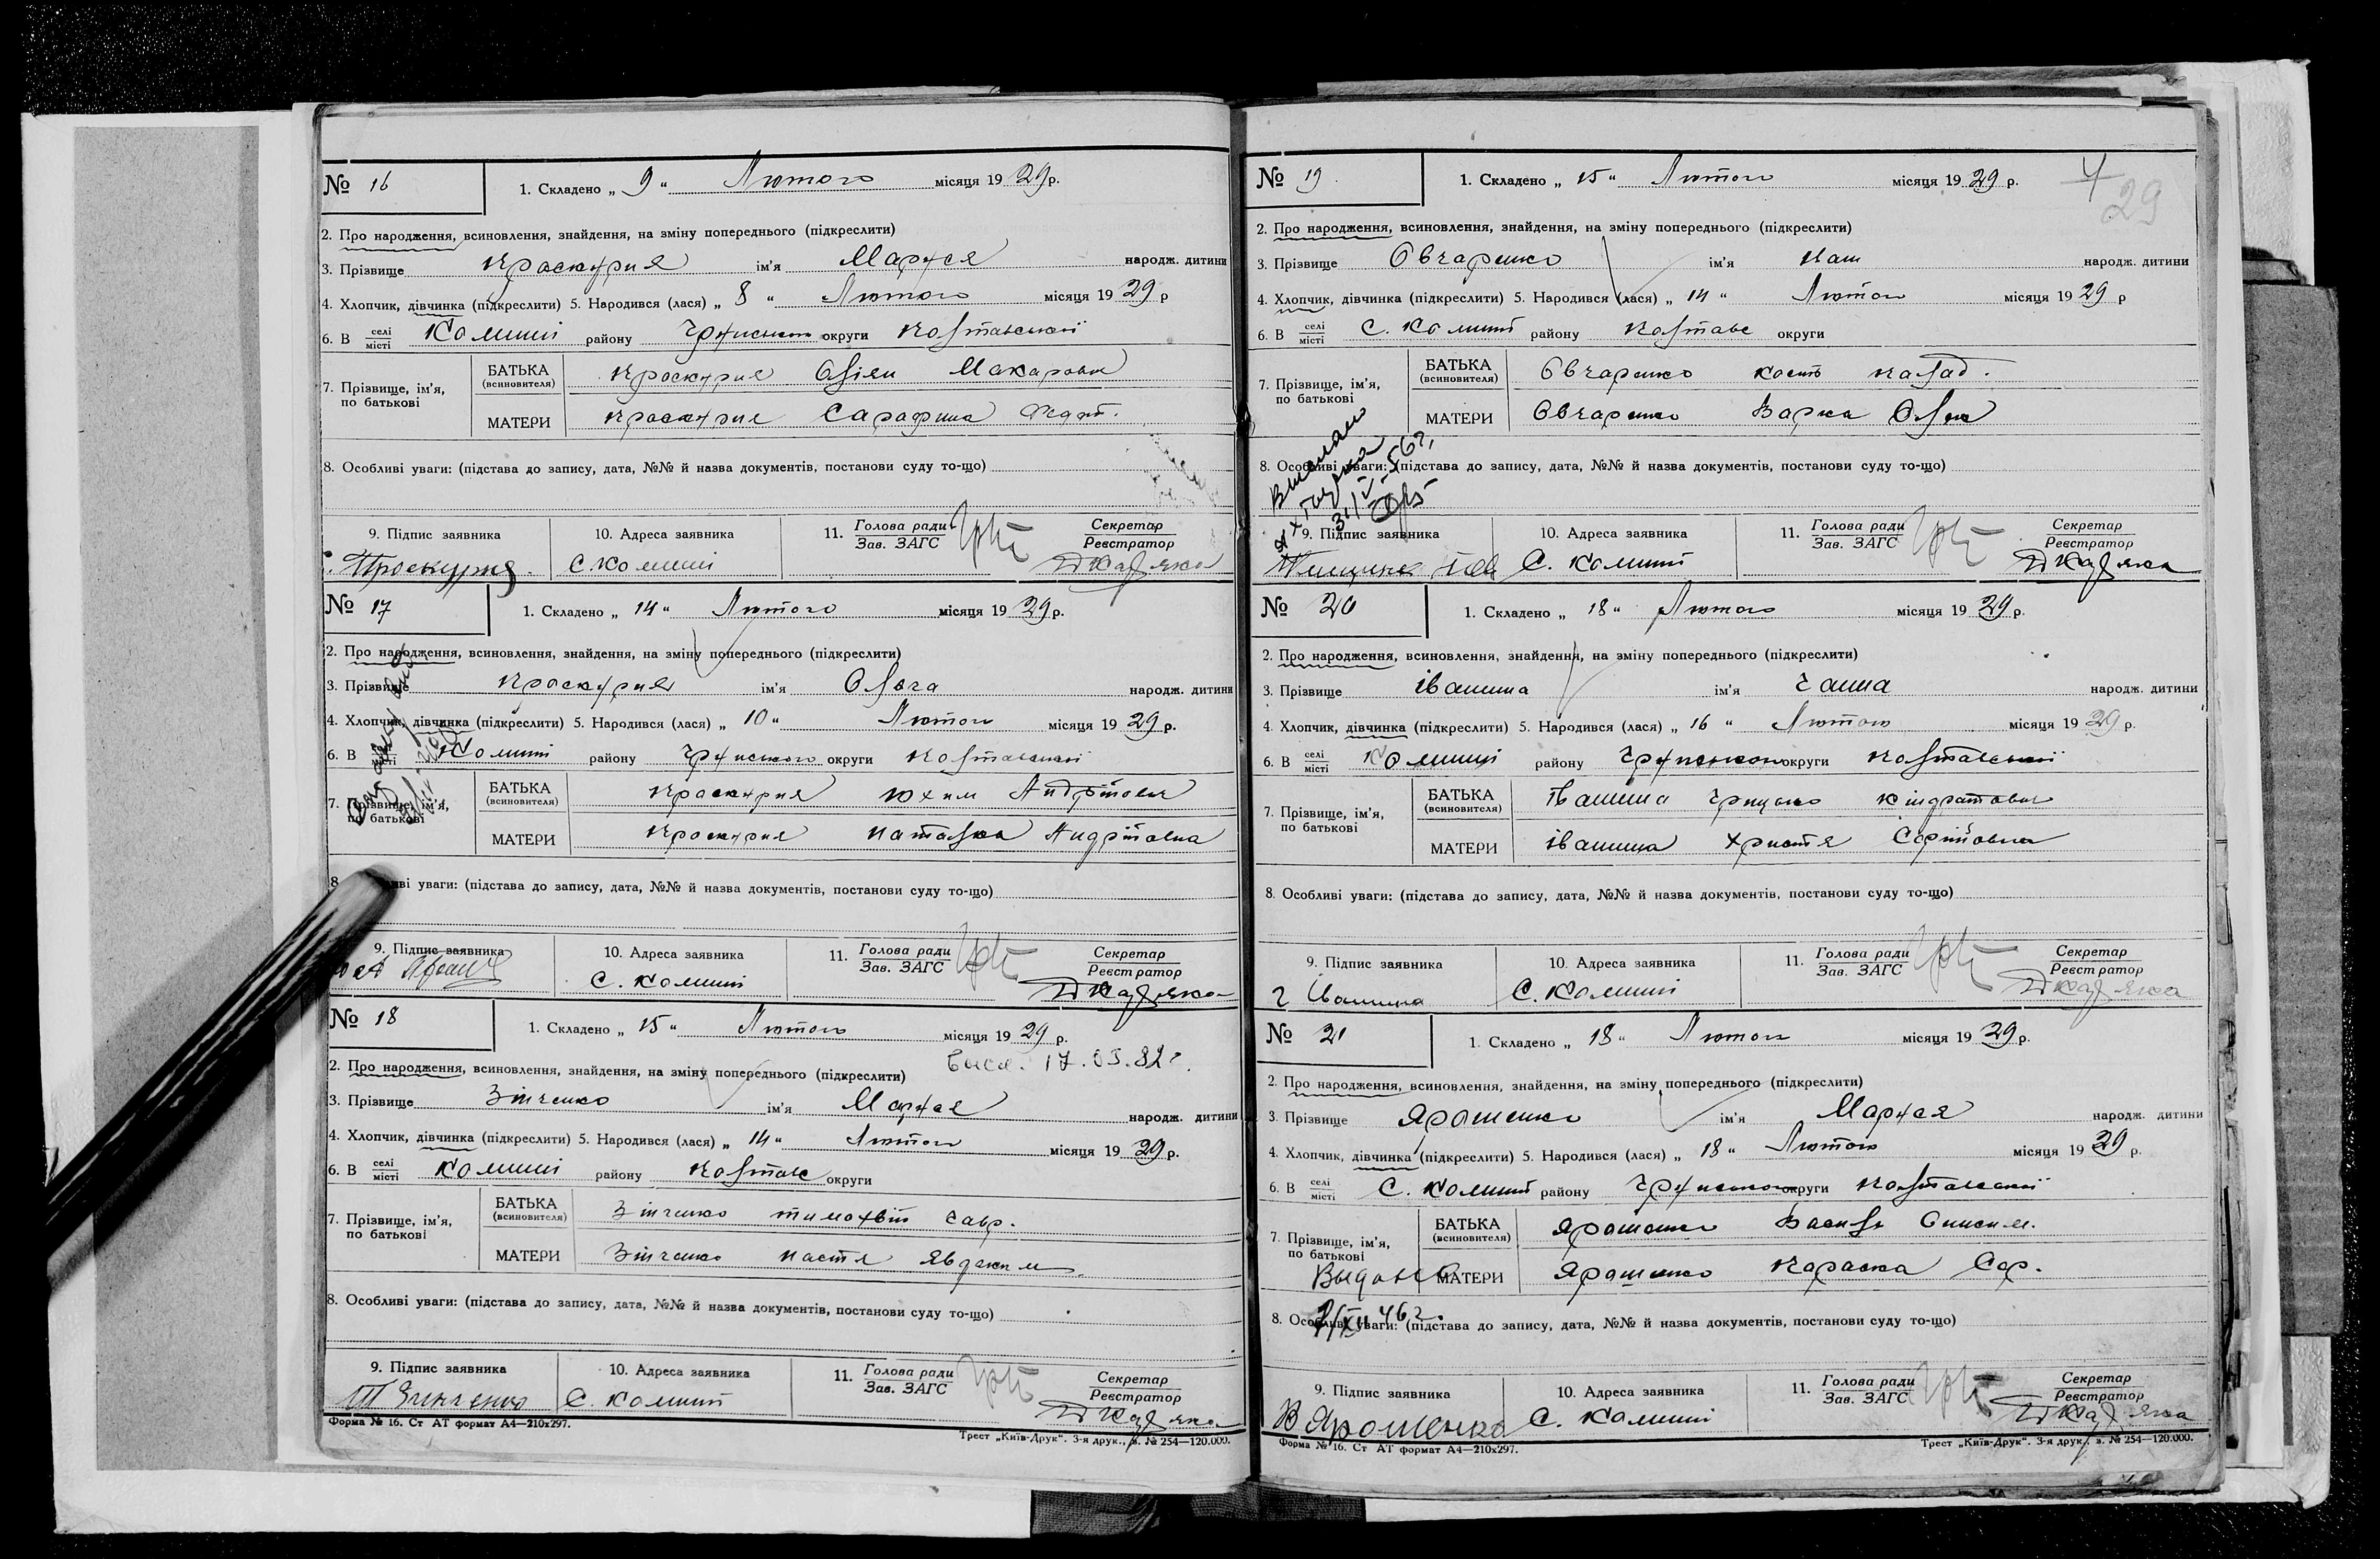 № 16
1. Складено „ 9 “ Лютого місяця 19 29 р.
2. Про народження, всиновлення, знайдення, на зміну попереднього (підкреслити)
3. Прізвище Проскурня ім’я Маруся народж. дитини
4. Хлопчик, дівчинка (підкреслити) 5. Народився (лася) „ 8 “ Лютого місяця 19 29 р
6. В селі/місті Комиші району Грунського округи Полтавської
7. Прізвище, ім’я, по батькові
БАТЬКА (всиновителя) Проскурня Макарович
МАТЕРИ Проскурня Сарафина Федот.
8. Особливі уваги: (підстава до запису, дата, №№ й назва документів, постанови суду то-що)
9. Підпис заявника
10. Адреса заявника
11. Голова ради / Зав. ЗАГС
Секретар / Реєстратор
Проскурня С. Комиші
№ 17
1. Складено „ 14 “ Лютого місяця 19 29 р.
2. Про народження, всиновлення, знайдення, на зміну попереднього (підкреслити)
3. Прізвище Проскурня ім’я Ольга народж. дитини
4. Хлопчик, дівчинка (підкреслити) 5. Народився (лася) „ 10 “ Лютого місяця 19 29 р.
6. В місті Комиші району Грунського округи Полтавської
7. Прізвище, ім’я, по батькові
БАТЬКА (всиновителя) Проскурня Юхим Андрійович
МАТЕРИ Проскурня Наталка Андрійовна
8. уваги: (підстава до запису, дата, №№ й назва документів, постанови суду то-що)
9. Підпис заявника
10. Адреса заявника
11. Голова ради / Зав. ЗАГС
Секретар / Реєстратор
С. Комиші
№ 18
1. Складено „ 15 “ Лютого місяця 19 29 р.
17.03.82г.
2. Про народження, всиновлення, знайдення, на зміну попереднього (підкреслити)
3. Прізвище Зінченко ім’я Маруся народж. дитини
4. Хлопчик, дівчинка (підкреслити) 5. Народився (лася) „ 14 “ Лютого місяця 19 29 р.
6. В селі/місті Комиші району Полтавс округи
7. Прізвище, ім’я, по батькові
БАТЬКА (всиновителя) Зінченко Тимохвій Савр.
МАТЕРИ Зінченко Настя Явдоким.
8. Особливі уваги: (підстава до запису, дата, №№ й назва документів, постанови суду то-що)
9. Підпис заявника
10. Адреса заявника
11. Голова ради / Зав. ЗАГС
Секретар / Реєстратор
Т Зинченко С. Комиші
Форма № 16. Ст АТ формат А4—210х297.
Трест „Київ-Друк“. 3-я друк., з. № 254—120.000.
№ 19
1. Складено „ 15 “ Лютого місяця 19 29 р.
4
29
2. Про народження, всиновлення, знайдення, на зміну попереднього (підкреслити)
3. Прізвище Овчаренко ім’я народж. дитини
4. Хлопчик, дівчинка (підкреслити) 5. Народився (лася) „ 14 “ Лютого місяця 19 29 р
6. В селі/місті С. Комиші району Полтавс округи
7. Прізвище, ім’я, по батькові
БАТЬКА (всиновителя) Овчаренко Кость
МАТЕРИ Овчаренко Варка
8. Особливі уваги: (підстава до запису, дата, №№ й назва документів, постанови суду то-що)
9. Підпис заявника
10. Адреса заявника
11. Голова ради / Зав. ЗАГС
Секретар / Реєстратор
С. Комиші
№ 20
1. Складено „ 18 “ Лютого місяця 19 29 р.
2. Про народження, всиновлення, знайдення, на зміну попереднього (підкреслити)
3. Прізвище Іваниця ім’я Ганна народж. дитини
4. Хлопчик, дівчинка (підкреслити) 5. Народився (лася) „ 16 “ Лютого місяця 19 29 р.
6. В селі/місті Комиші району Грунського округи Полтавської
7. Прізвище, ім’я, по батькові
БАТЬКА (всиновителя) Іваниця Грицько Кіндратович
МАТЕРИ Іваниця Христя Сергійовна
8. Особливі уваги: (підстава до запису, дата, №№ й назва документів, постанови суду то-що)
9. Підпис заявника
10. Адреса заявника
11. Голова ради / Зав. ЗАГС
Секретар / Реєстратор
Г Іваница С. Комиші
№ 21
1. Складено „ 18 “ Лютого місяця 19 29 р.
2. Про народження, всиновлення, знайдення, на зміну попереднього (підкреслити)
3. Прізвище Ярошенко ім’я Маруся народж. дитини
4. Хлопчик, дівчинка (підкреслити) 5. Народився (лася) „ 18 “ Лютого місяця 19 29 р.
6. В селі/місті С. Комиші району Грунського округи Полтавської
7. Прізвище, ім’я, по батькові
БАТЬКА (всиновителя) Ярошенко Василь Онисим.
МАТЕРИ Ярошенко Параска Сер.
8. Особливі уваги: (підстава до запису, дата, №№ й назва документів, постанови суду то-що)
9. Підпис заявника
10. Адреса заявника
11. Голова ради / Зав. ЗАГС
Секретар / Реєстратор
В Ярошенко С. Комиші
Форма № 16. Ст АТ формат А4—210х297.
Трест „Київ-Друк“. 3-я друк., з. № 254—120.000.